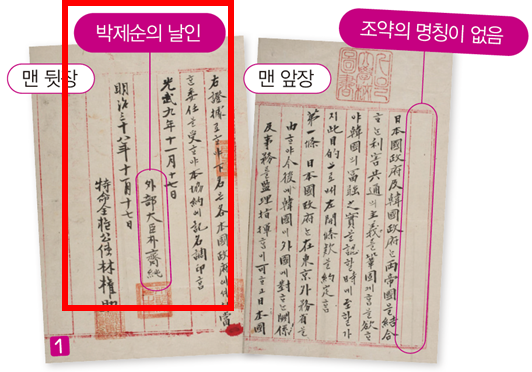 박제순의 날인
조약의 명칭이 없음
맨 뒷장
맨 앞장
日本國政府及韓國政府는兩帝國을結合
하는利害共通의主義를鞏固케함을欲하
야韓國의富强之實을認할時에至할가
지此目的으로써左開條款을約定함
第一條 日本國政府는在東京外務省을
由하야今後에韓國이外國에對하는關係
及事務를監理指揮함이可하고日本國
右證據로삼아下名은各本國政府에셔相當
한委任을受하야本協約에記名調印함
光武九年十一月十七日
外部大臣朴齊純
明治三十八年十一月十七日
特命全權公使林權助
1